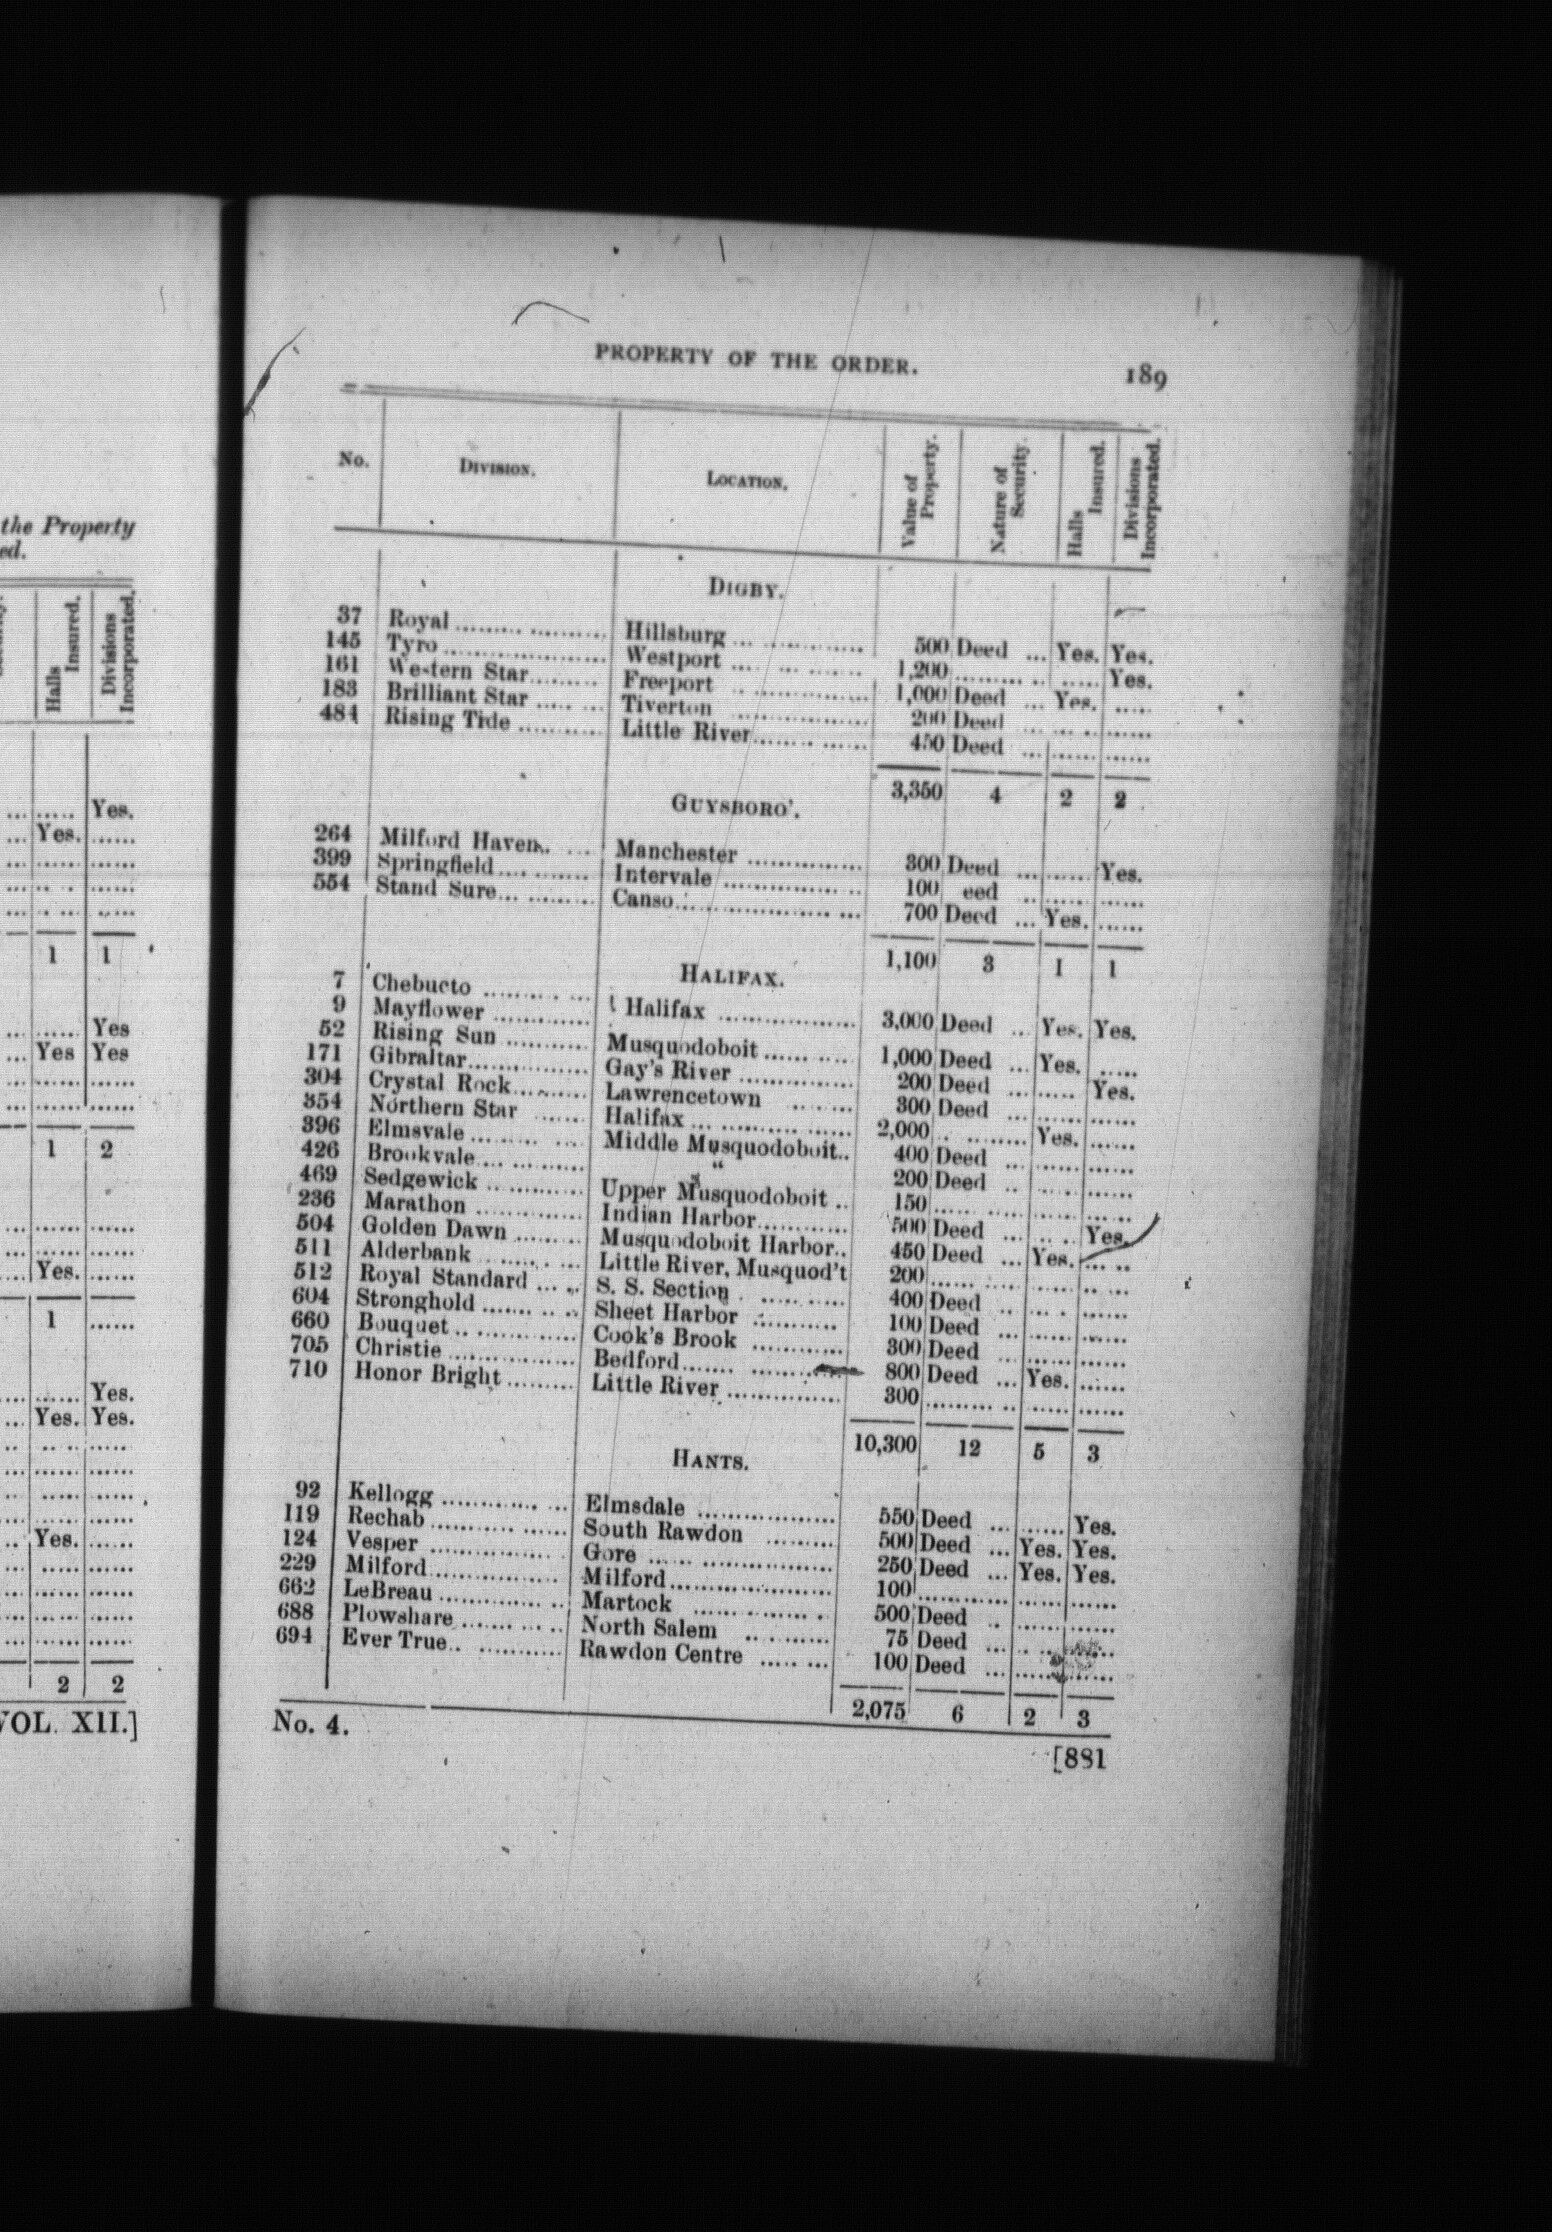 the Property
ed.
Halls Insured.
Divisions Incorporated.
Yes.
Yes.
1 1
Yes
Yes Yes
1 2
Yes.
1
Yes.
Yes. Yes.
Yes.
2 2
VOL. XII.]
PROPERTY OF THE ORDER. 189
No. DIVISION. LOCATION. Value of Property. Nature of Security. Halls Insured. Divisions Incorporated.
DIGBY.
37 Royal Hillsburg 500 Deed Yes. Yes.
145 Tyro Westport 1,200 Yes.
161 Western Star Freeport 1,000 Deed Yes.
183 Brilliant Star Tiverton 200 Deed
484 Rising Tide Little River 450 Deed
3,350 4 2 2
GUYSBORO'.
264 Milford Haven Manchester 300 Deed Yes.
399 Springfield Intervale 100 eed
554 Stand Sure Canso 700 Deed Yes.
1,100 3 1 1
HALIFAX.
7 Chebucto
9 Mayflower Halifax 3,000 Deed Yes. Yes.
52 Rising Sun Musquodoboit 1,000 Deed Yes.
171 Gibraltar Gay's River 200 Deed Yes.
304 Crystal Rock Lawrencetown 300 Deed
354 Northern Star Halifax 2,000 Yes.
396 Elmsvale Middle Musquodoboit 400 Deed
426 Brookvale “ 200 Deed
469 Sedgewick Upper Musquodoboit 150
236 Marathon Indian Harbor 500 Deed Yes.
504 Golden Dawn Musquodoboit Harbor 450 Deed Yes.
511 Alderbank Little River, Musquod't 200
512 Royal Standard S. S. Section 400 Deed
604 Stronghold Sheet Harbor 100 Deed
660 Bouquet Cook's Brook 300 Deed
705 Christie Bedford 800 Deed Yes.
710 Honor Bright Little River 300
10,300 12 5 3
HANTS.
92 Kellogg Elmsdale 550 Deed Yes.
119 Rechab South Rawdon 500 Deed Yes. Yes.
124 Vesper Gore 250 Deed Yes. Yes.
229 Milford Milford 100
662 LeBreau Martock 500 Deed
688 Plowshare North Salem 75 Deed
694 Ever True Rawdon Centre 100 Deed
2,075 6 2 3
No. 4.
[881